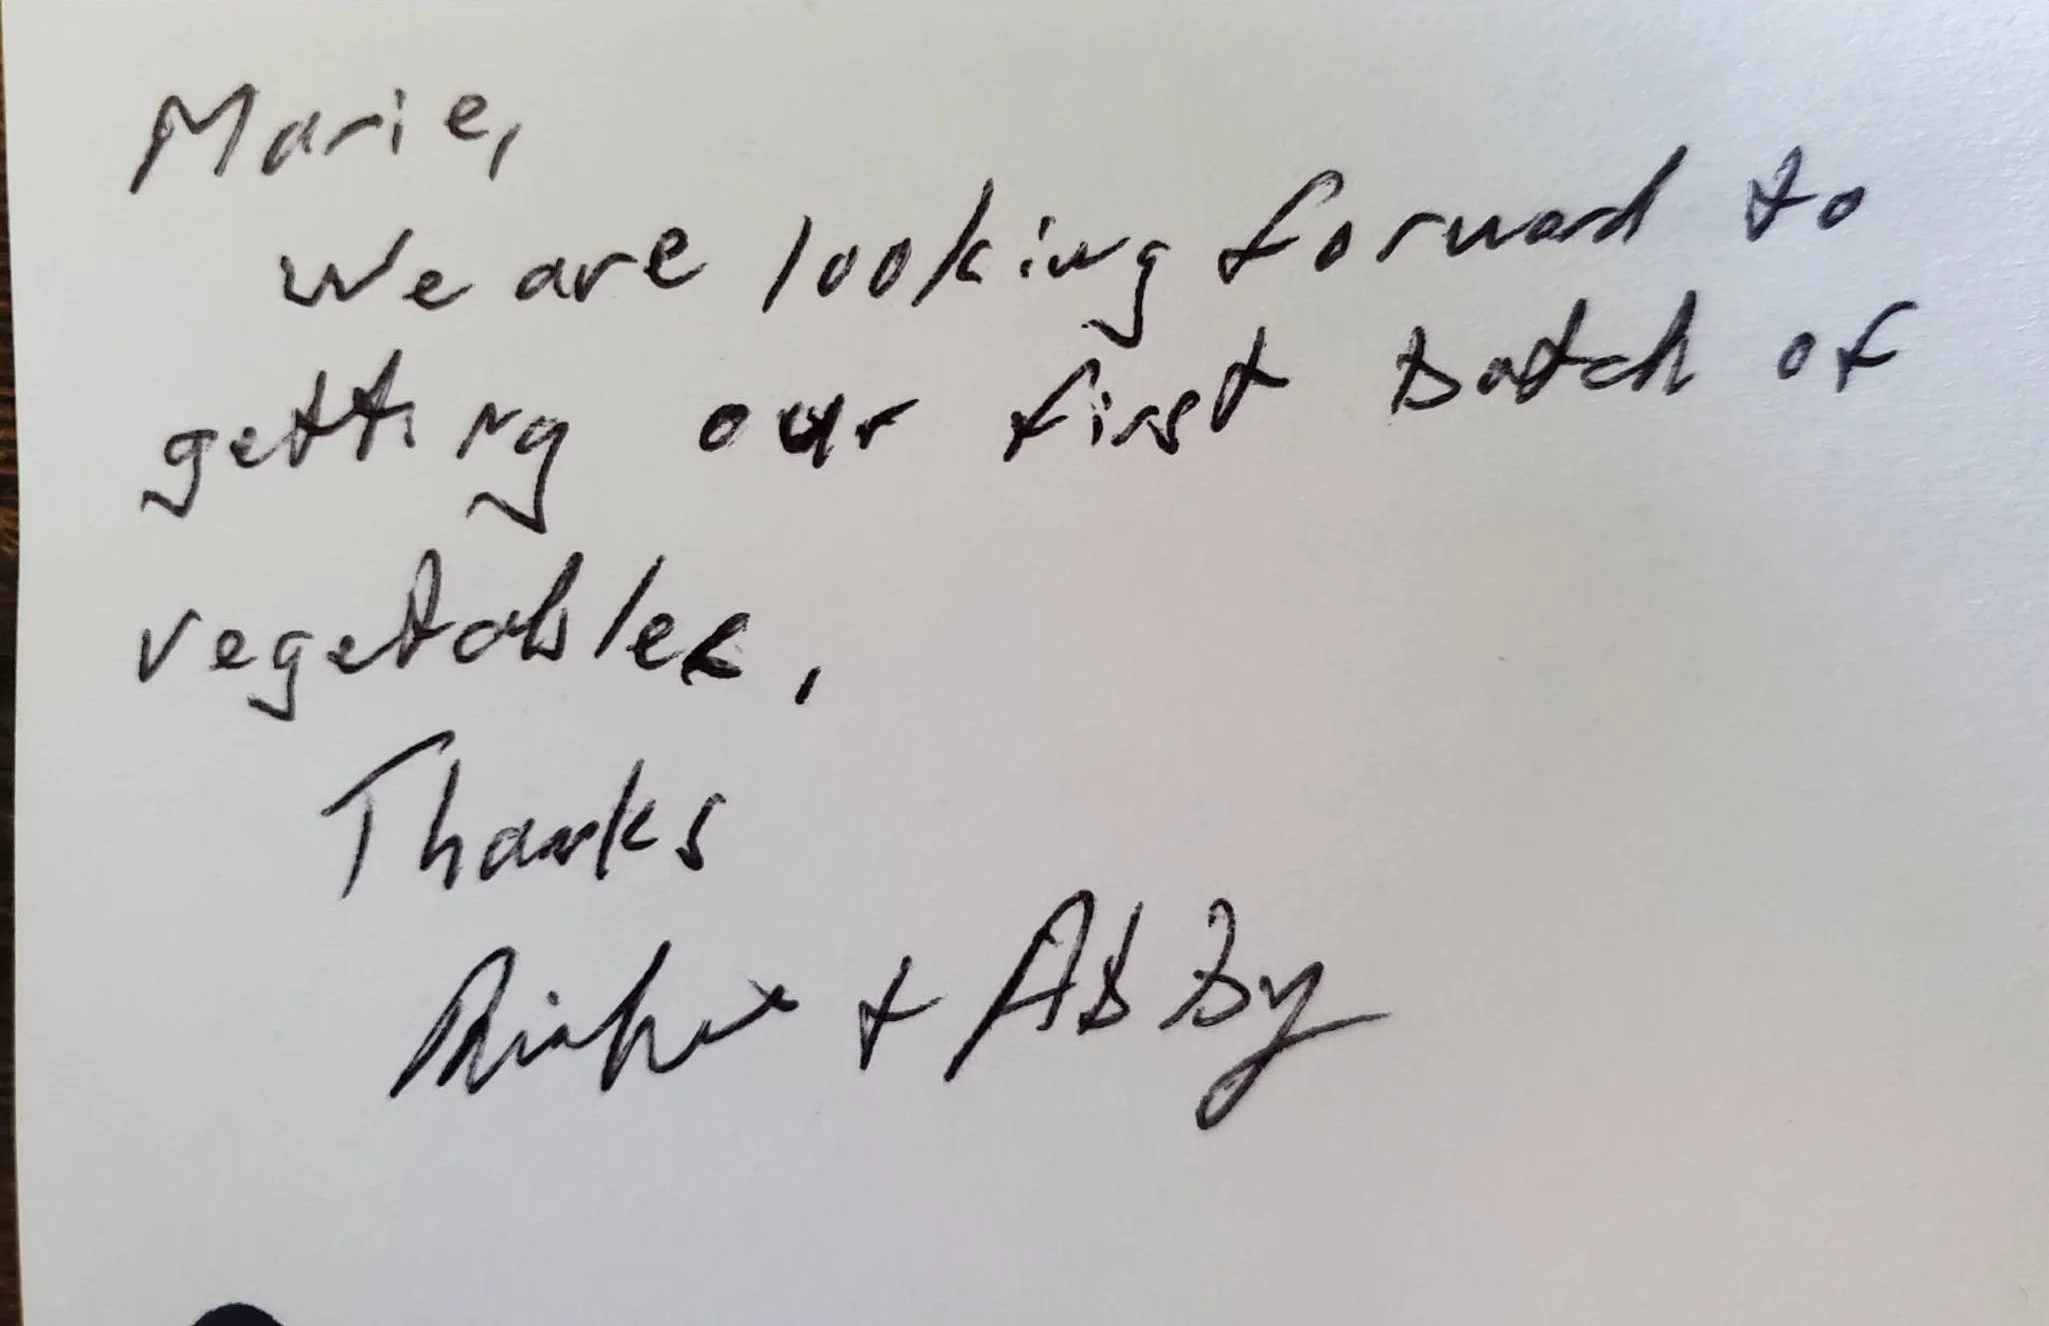 Marie,
We are looking forward to
getting our first batch of
vegetables,
Thanks
+ Abby